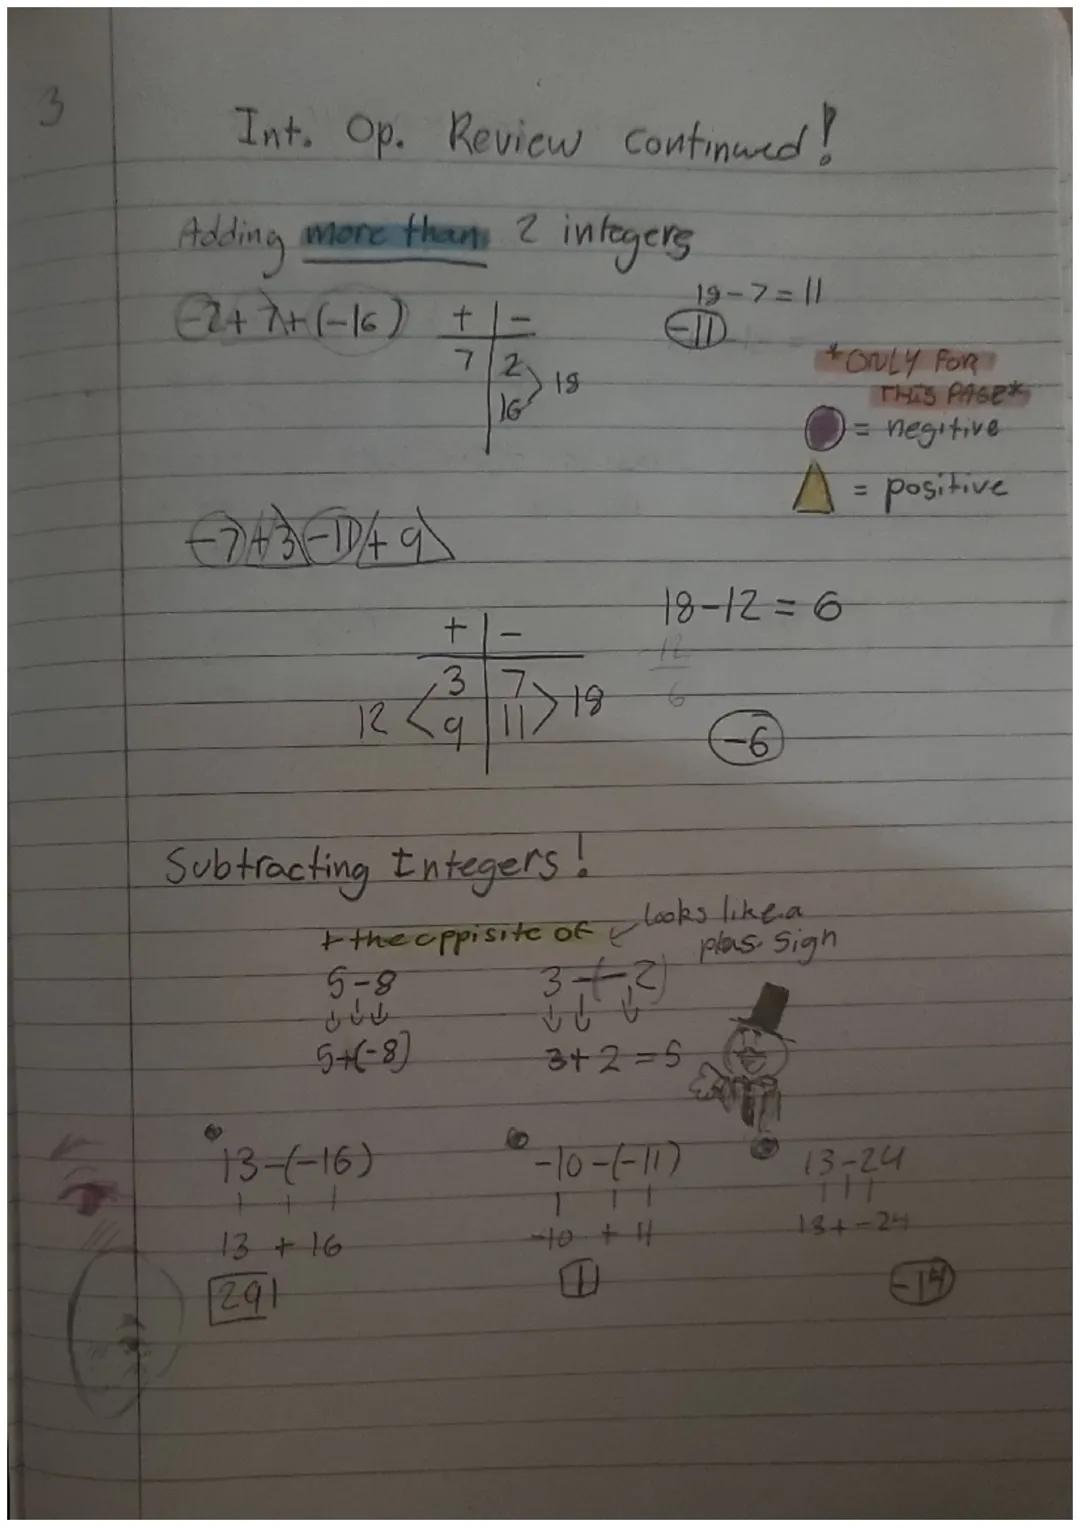 3
Int. Op. Review continued!
Adding more than 2 integers
-2+7+(-16)
+ | -
7 | 2
16
18
18-7=11
-11
*ONLY FOR
THIS PAGE*
= negitive
= positive
-7+3-11+9
+ | -
3 | 7
9 | 11
12
18
18-12=6
12
6
-6
Subtracting Integers!
+ the oppisite of
looks like a
plus sign
5-8
5+(-8)
3-(-2)
3+2=5
13-(-16)
13+16
29
-10-(-11)
-10+11
1
13-24
13+-24